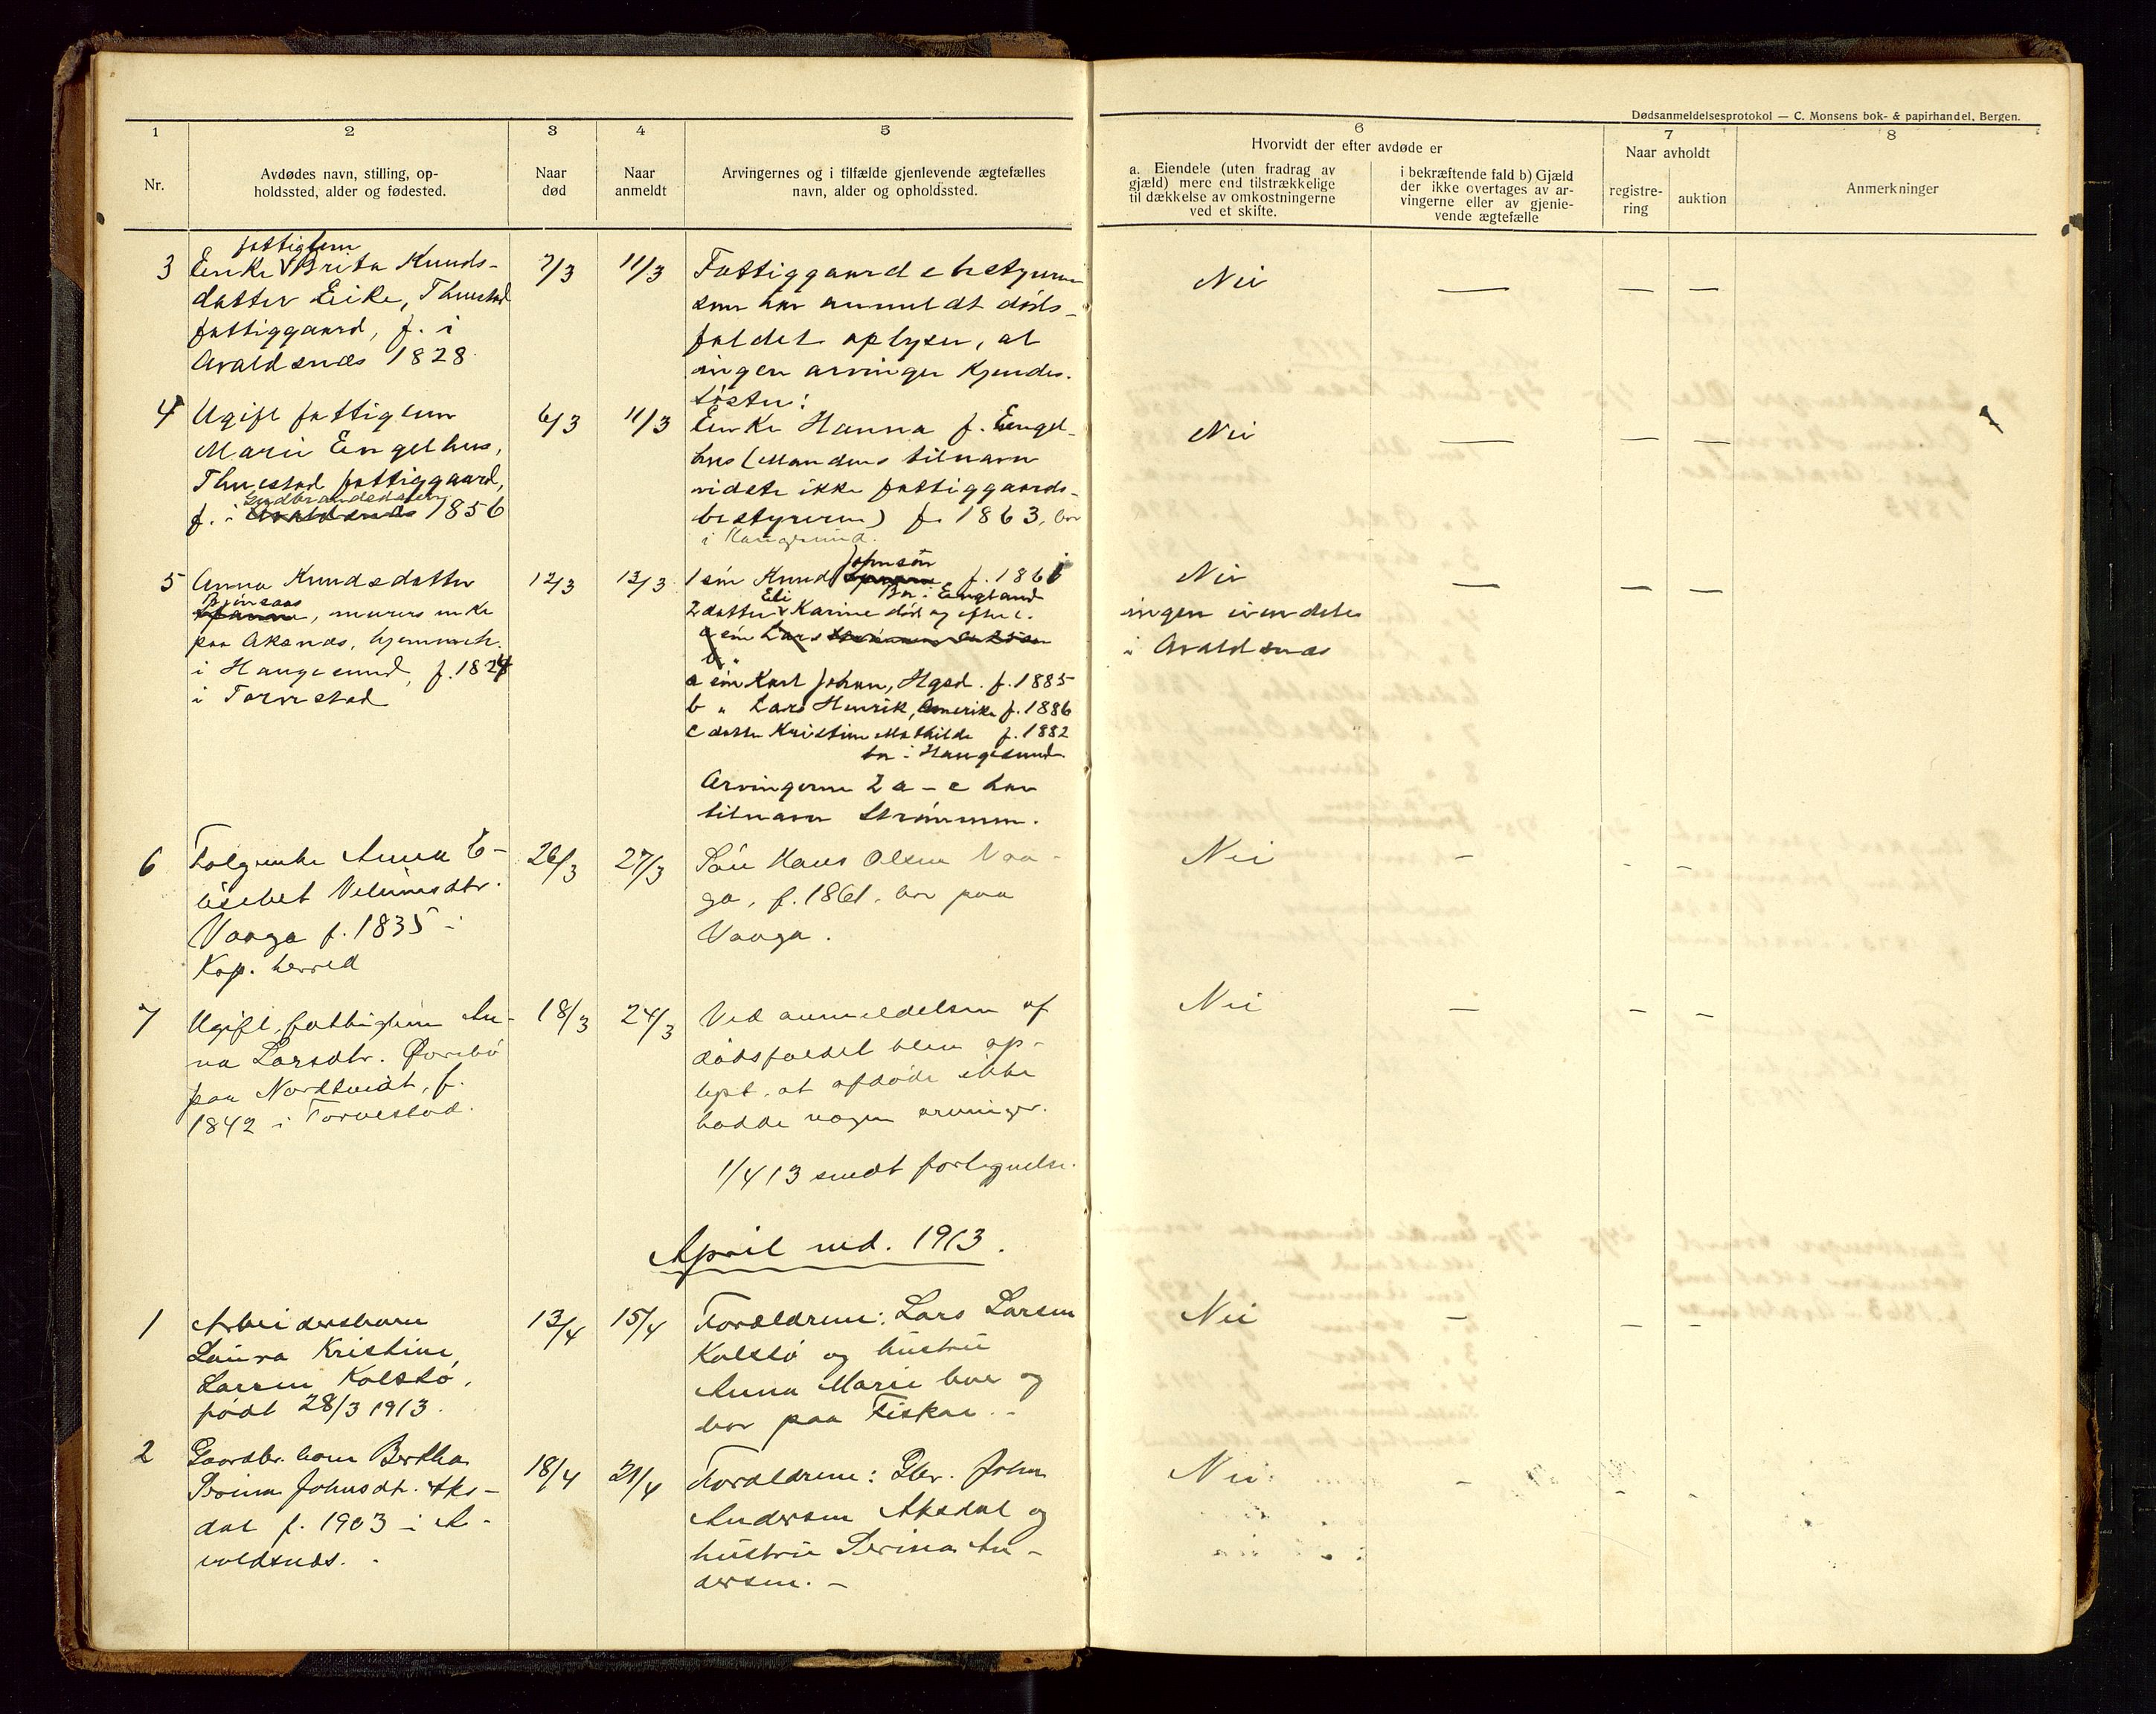 Dødsanmeldelsesprotokol — C. Monsens bok- & papirhandel, Bergen.
1 2 3 4 5 6 7 8
Nr.
Avdødes navn, stilling, op-
holdssted, alder og fødested.
Naar
død
Naar
anmeldt
Arvingernes og i tilfælde gjenlevende ægtefælles
navn, alder og opholdssted.
Hvorvidt der efter avdøde er
a. Eiendele (uten fradrag av
gjæld) mere end tilstrækkelige
til dækkelse av omkostningerne
ved et skifte.
i bekræftende fald b) Gjæld
der ikke overtages av ar-
vingerne eller av gjenle-
vende ægtefælle
Naar avholdt
registre-
ring
auktion
Anmerkninger
fattiglem
3 Enke Brita Knuds-
datter Eike, Thuestad
fattiggaard, f. i
Avaldsnæs 1828
7/3 11/3
Fattiggaardsbestyreren
som har anmeldt døds-
faldet oplyser, at
ingen arvinger kjendes.
Nei — — —
4 Ugift fattiglem
Marie Engelhus,
Thuestad fattiggaard,
Gudbrandsdalen
f. i Avaldsnæs 1856
6/3 11/3
Søster:
Enke Hanna f. Engel-
hus (Mandens tilnavn
vidste ikke fattiggaards-
bestyreren) f. 1863, bor
i Haugesund.
Nei — — —
5 Anna Knudsdatter
Bjønsaas
, murers enke
paa Aksnæs, hjemmeh.
i Haugesund, f. 1824
i Torvestad
12/3 13/3
Johnson
1 søn Knud f. 1861
Eli Bor i England
2 datter Karine død og efterl.
a søn Lars
b "
a søn Karl Johan, Hgsd. f. 1885
b " Lars Henrik, Amerika f. 1886
c datter Kristine Mathilde f. 1882
bor i Haugesund.
Arvingerne 2 a – c har
tilnavn Strømmen.
Nei — — —
ingen eiendele
i Avaldsnæs
6 Folgenke Anna E-
lisebet Velumsdtr.
Vaaga f. 1835 i
Kop. herred
26/3 27/3
Søn Hans Olsen Vaa-
ga, f. 1861, bor paa
Vaaga.
Nei – – –
7 Ugift, fattiglem An-
na Larsdtr. Øvrebø
paa Nordtveidt, f.
1842 i Torvestad.
18/3 24/3
Ved anmeldelsen af
dødsfaldet blev op-
lyst, at afdøde ikke
hadde nogen arvinger.
Nei – – –
1/4 13 sendt fortegnelse.
April md. 1913.
1 Arbeidersbarn
Laura Kristine
Larsen Kolstø,
født 28/3 1913.
13/4 15/4
Forældrene: Lars Larsen
Kolstø og hustru
Anna Marie lever og
bor paa Fiskaa. –
Nei – – –
2 Gaardbr. barn Bertha
Johnsdt. Aks-
dal f. 1903 i A-
valdsnæs. –
18/4 21/4
Forældrene: Gbr. John
Andersen Aksdal og
hustru Serina An-
dersen. –
Nei – –